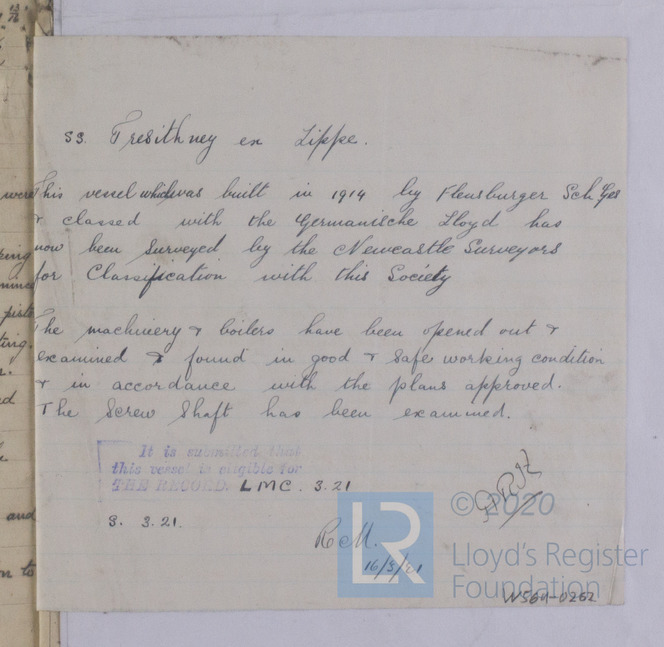 SS. Tresithney ex Lippe.
This vessel which was built in 1914 by Flensburger Sch Ges
& classed with the Germanische Lloyd has
now been surveyed by the Newcastle Surveyors
for Classification with this Society
The machinery & boilers have been opened out &
examined & found in good & safe working condition
& in accordance with the plans approved.
The Screw Shaft has been examined.
It is submitted that
this vessel is eligible for
THE RECORD. LMC. 3.21
S. 3.21.
16/3/21
© 2020
LR
Lloyd's Register
Foundation
W564-0262
were
and